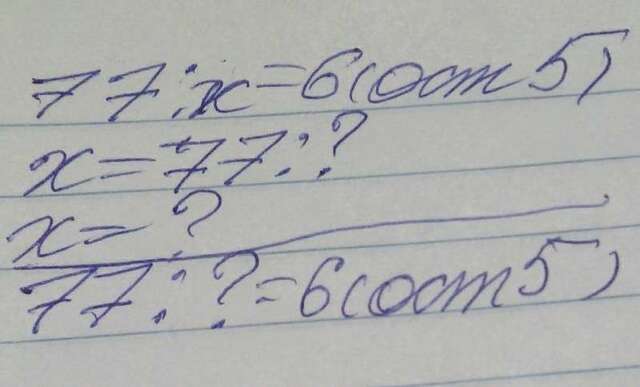 77:x=6(ост5)
x=77:?
x=?
77:?=6(ост5)